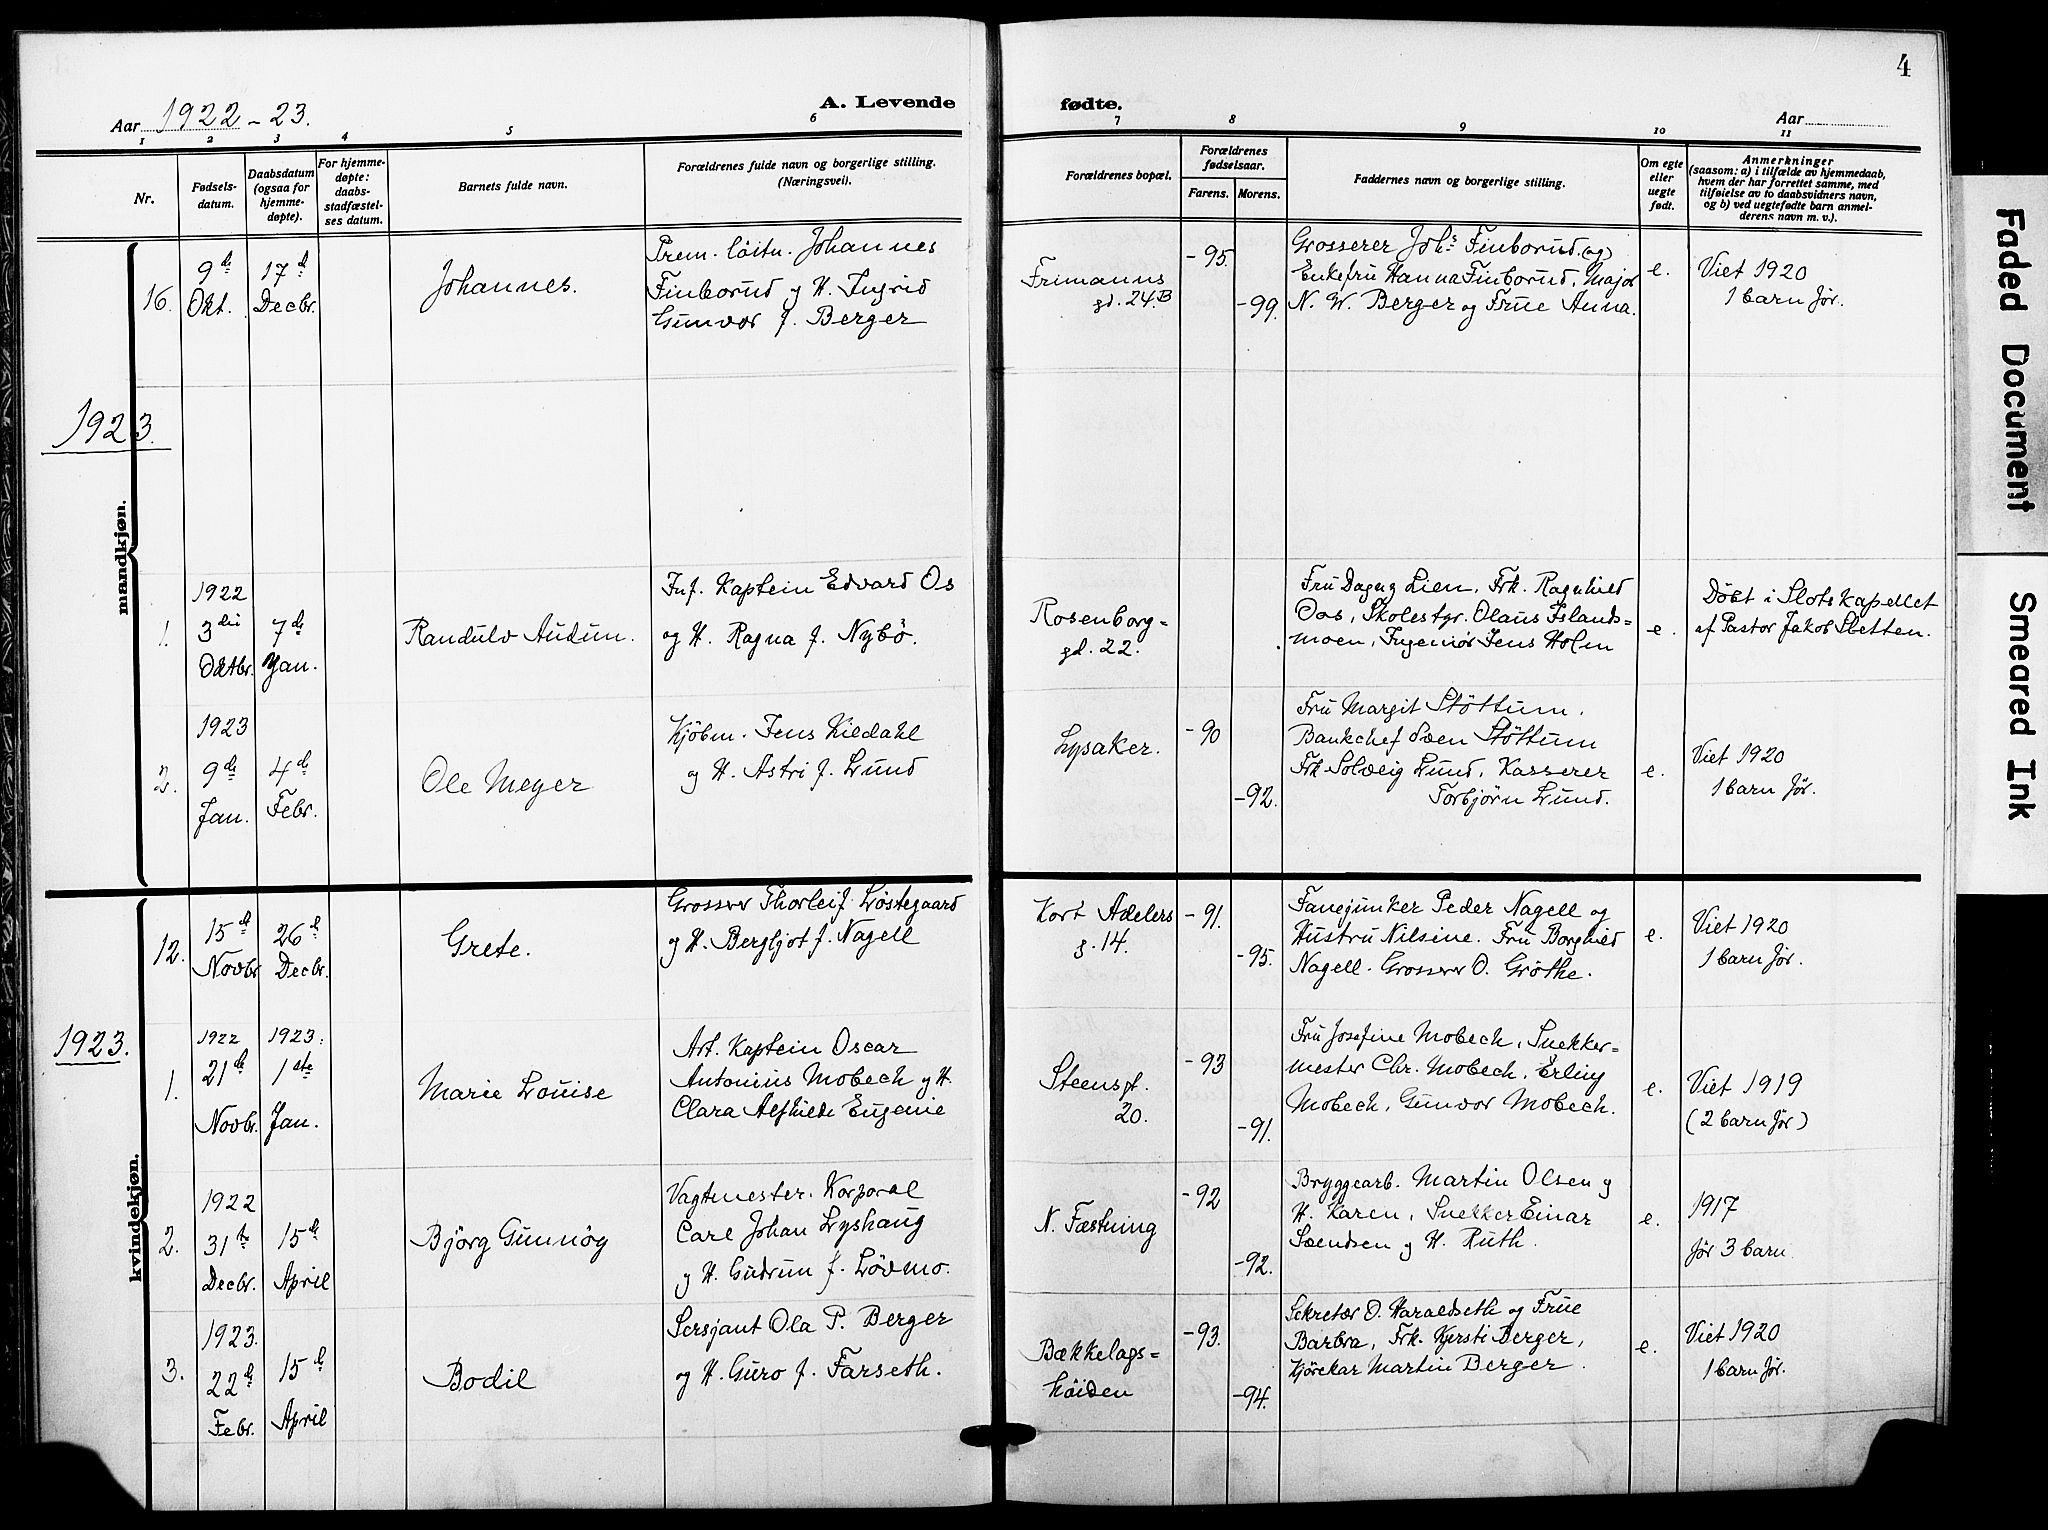 4
Aar 1922-23.
A. Levende fødte.
Aar
1 2 3 4 5 6 7 8 9 10 11
Nr.
Fødsels-
datum.
Daabsdatum
(ogsaa for
hjemme-
døpte).
For hjemme-
døpte:
daabs-
stadfæstel-
ses datum.
Barnets fulde navn.
Forældrenes fulde navn og borgerlige stilling.
(Næringsvei).
Forældrenes bopæl.
Forældrenes
fødselsaar.
Farens. Morens.
Faddernes navn og borgerlige stilling.
Om egte
eller
uegte
født.
Anmerkninger
(saasom: a) i tilfælde av hjemmedaab,
hvem der har forrettet samme, med
tilføielse av to daabsvidners navn,
og b) ved uegtefødte barn anmel-
derens navn m. v.).
mandkjøn.
16.
9de
Okt.
17d
Decbr.
Johannes.
Prem. löitn. Johannes
Finborud og H. Ingrid
Gunvor f. Berger
Frimanns
gd. 24B
-95.
-99.
Grosserer Johs Finborud og
Enkefru Hanna Finborud, Major
N. W. Berger og Frue Anna.
e.
Viet 1920
1 barn før.
1923.
1.
1922
3die
Oktbr.
7de
Jan.
Randulv Audun.
Inf. Kaptein Edvard Os
og H. Ragna f. Nybö.
Rosenborg=
gd. 22.
Fru Dagny Lien, Frk. Ragnhild
Oos, Skolestyr. Olaus Islands=
moen, Ingeniør Jens Holm
e.
Döbt i Slotskapellet
af Pastor Jakob Sletten.
2.
1923
9de
Jan.
4de
Febr.
Ole Meyer
Kjöbm. Jens Kildahl
og H. Astri f. Lund
Lysaker.
-90
-92.
Fru Margit Stöttum.
Bankchef Sven Stöttum
Frk Solveig Lund, Kasserer
Torbjörn Lund.
e.
Viet 1920
1 barn før.
kvindekjøn.
12.
15d
Novbr.
26d
Decbr.
Grete.
Grosserer Thorleif Löstegaard
og H. Bergljot f. Nagell
Kort Adelers
g. 14.
-91.
-95.
Fanejunker Peder Nagell og
Hustru Nilsine. Fru Borghild
Nagell. Grosserer O. Gröthe.
e.
Viet 1920
1 barn før.
1923.
1.
1922
21de
Novbr.
1923.
1ste
Jan.
Marie Louise
Art. Kaptein Oscar
Antonius Mobech og H.
Clara Alfhilde Eugenie
Steensgt.
20.
-93
-91.
Fru Josefine Mobech, Snekker=
mester Chr. Mobech, Erling
Mobech, Gunvor Mobech.
e.
Viet 1919
(2 barn før)
2.
1922
31te
Decbr.
15d
April
Björg Gunnög
Vagtmester. Korporal
Carl Johan Lyshaug
og H. Gudrun f. Lövmo.
N. Fæstning
-92
-92.
Bryggearb. Martin Olsen og
H. Karen, Snekker Einar
Svendsen og H. Ruth.
e.
1917
før 3 barn
3.
1923.
22de
Febr.
15d
April
Bodil
Sersjant Ola P. Berger
og H. Guro f. Farseth.
Bækkelags=
höiden
-93.
-94.
Sekretær O. Haraldseth og Frue
Barbra, Frk. Kjersti Berger,
Kjörekar Martin Berger.
e.
Viet 1920
1 barn før.
Faded Document
Smeared Ink